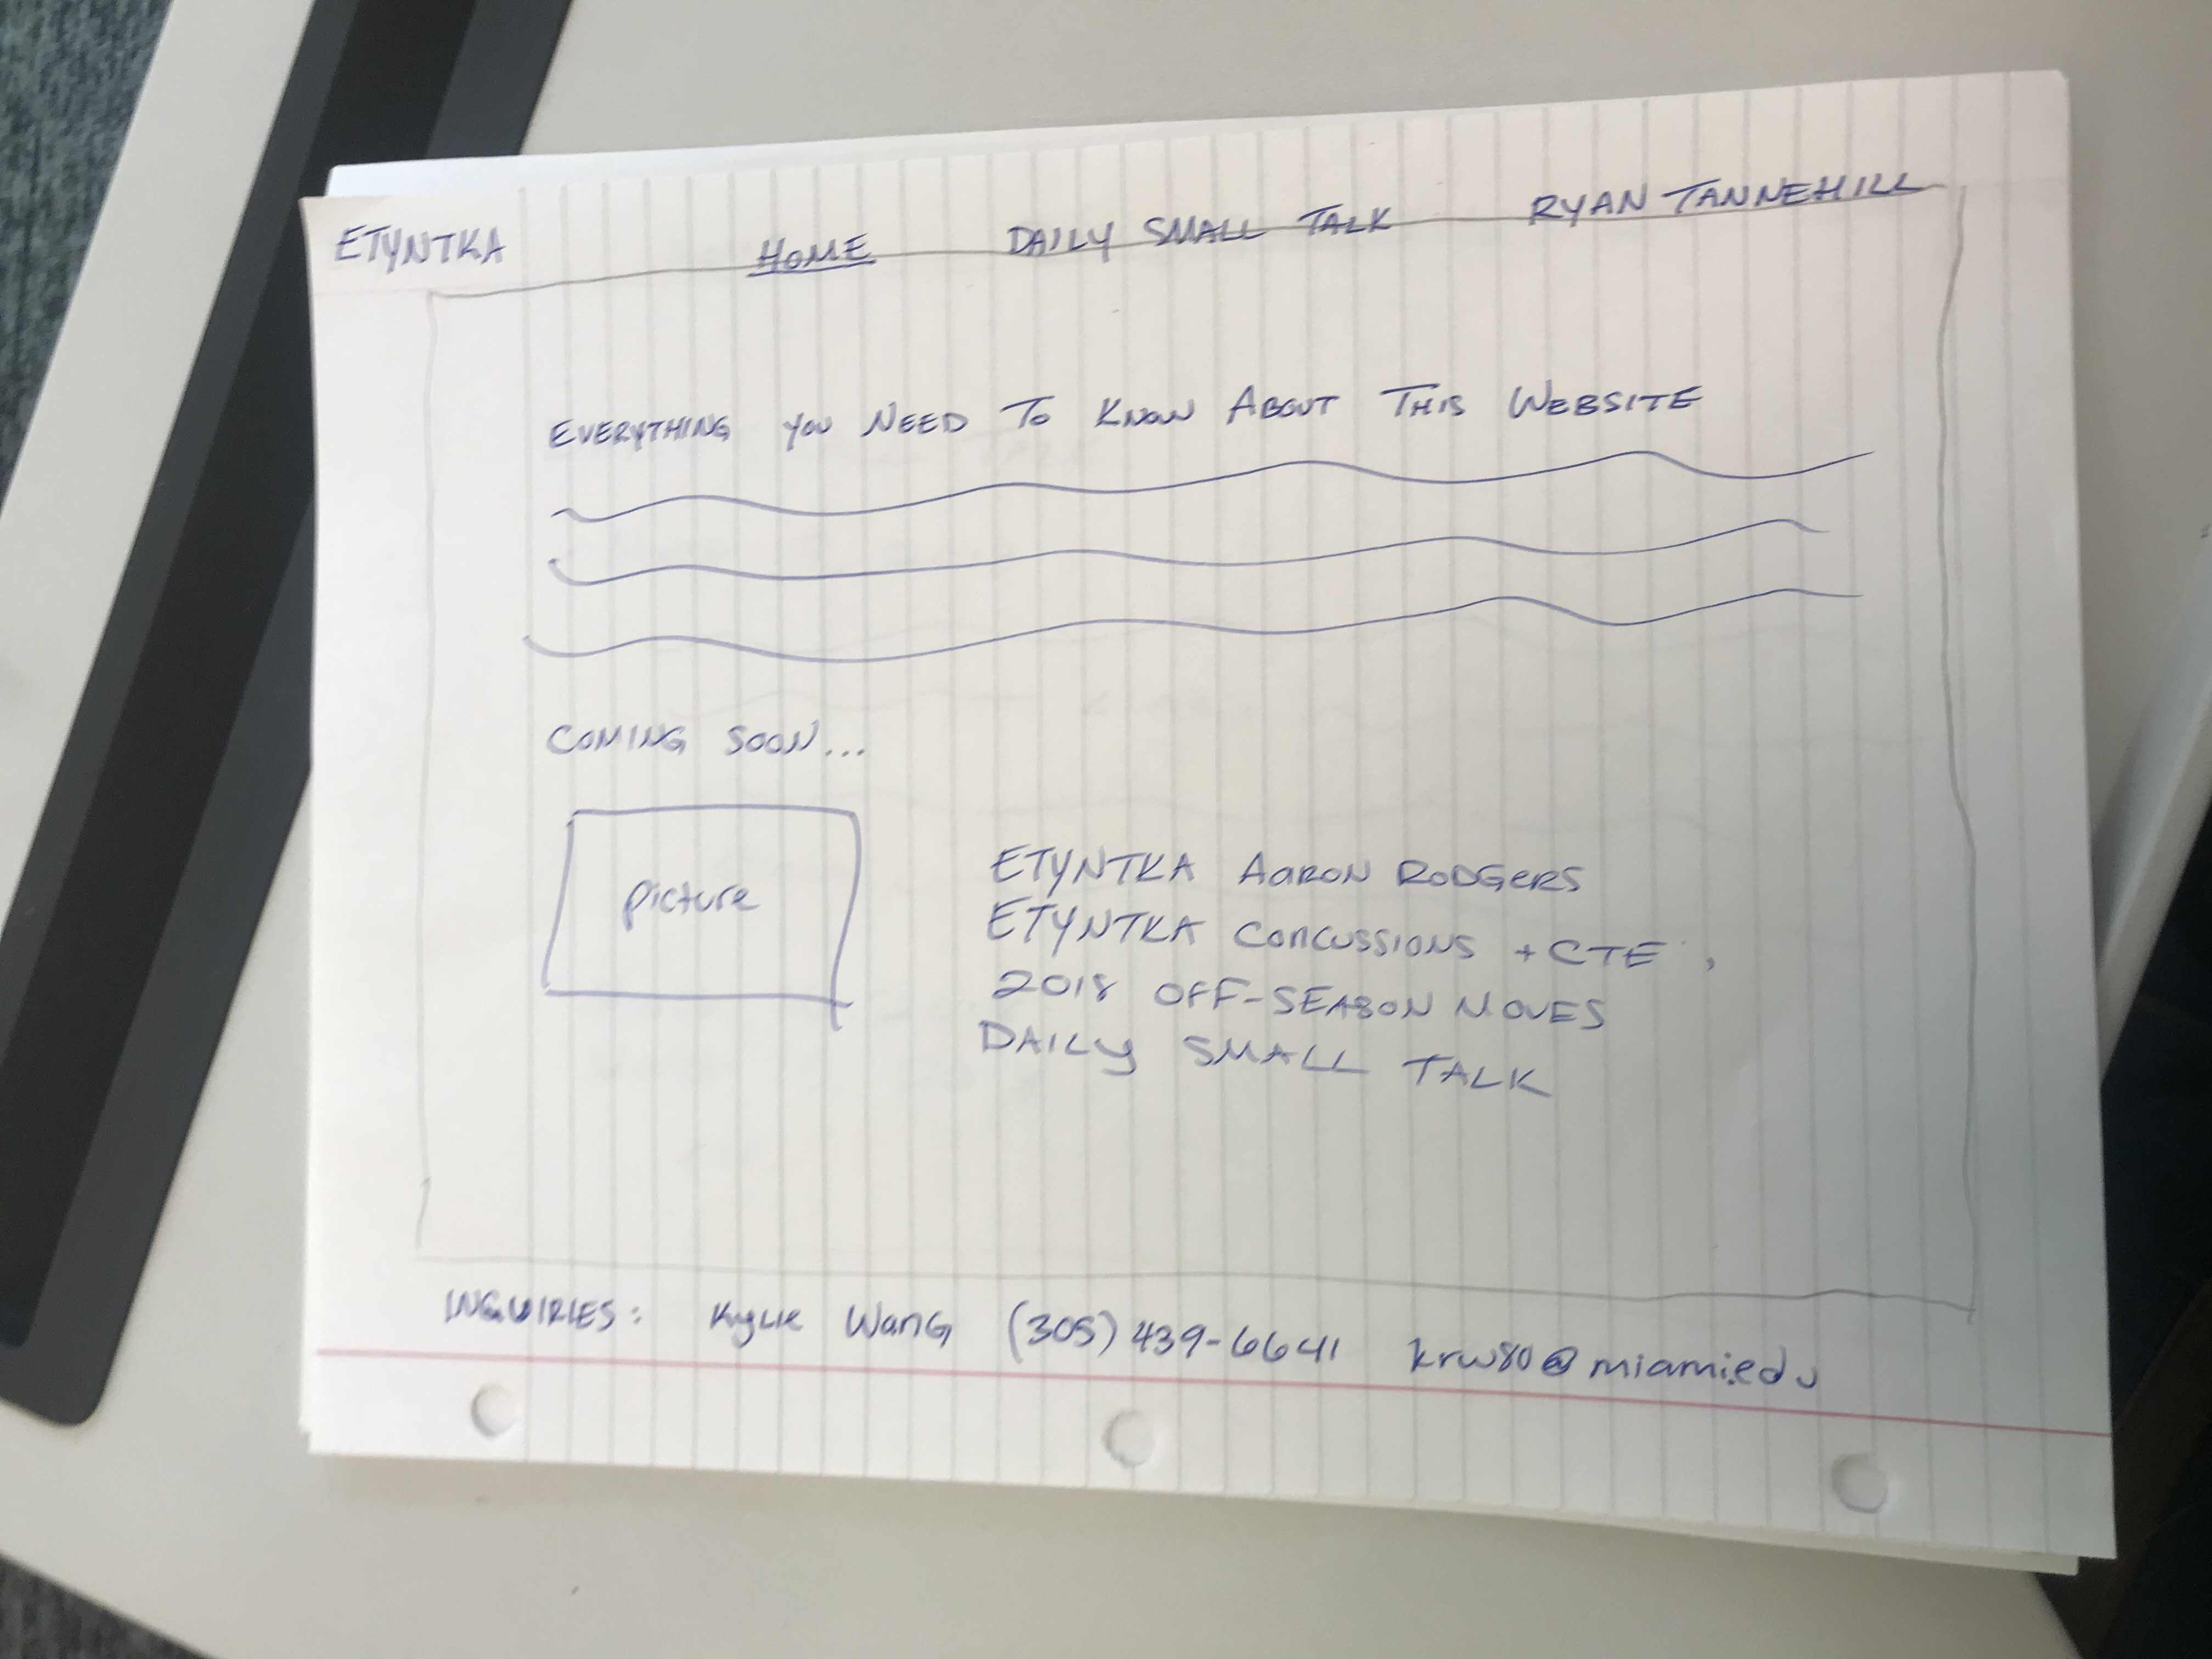 ETYNTKA HOME DAILY SMALL TALK RYAN TANNEHILL
EVERYTHING YOU NEED TO KNOW ABOUT THIS WEBSITE
COMING SOON...
Picture
ETYNTKA AARON RODGERS
ETYNTKA CONCUSSIONS + CTE,
2018 OFF-SEASON MOVES
DAILY SMALL TALK
INQUIRIES: Kylie Wang (305) 439-6641 krw80@miami.edu